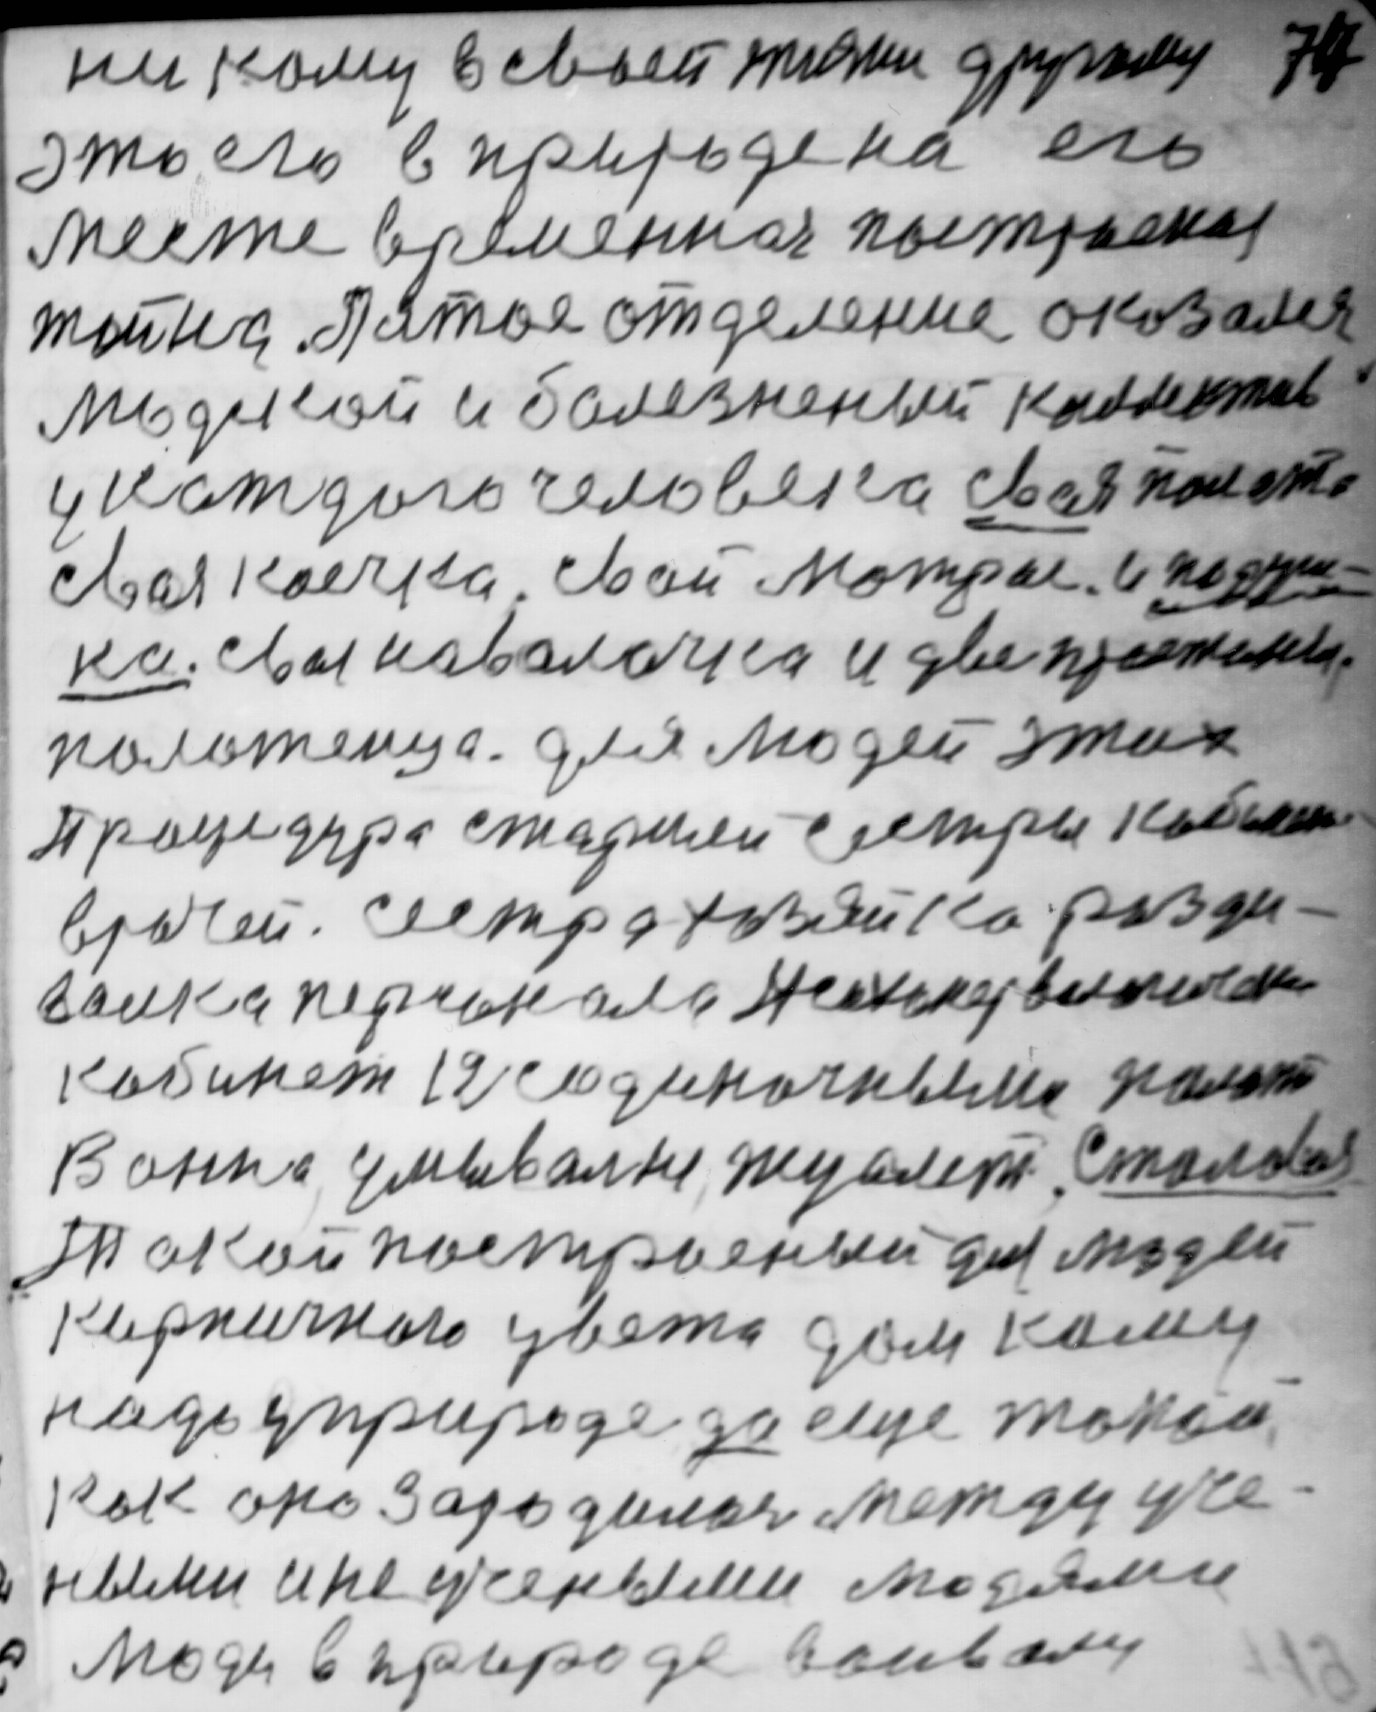 ни кому в своей жизни другому
это его в природе на его
месте временная построеная
тайна. Пятое отделение оковалея
людской и болезненый коллектив
у каждого человека своя полата
своя коечка. свой матрас. и подуш-
ка. своя наволочка и две простыни,
полотенца. для людей этих
процедура старшей сестры кабинет
врачей. сестра хозяйка разди-
валка персонала
кабинет 12 с одиночными полат
Ванна, умывални, туалет, Столовая
Такой построеный для людей
кирпичного цвета дом кому
надо у природе да еще такой
как оно зародилась между уче-
ными и не учеными людями
люди в природе воивали